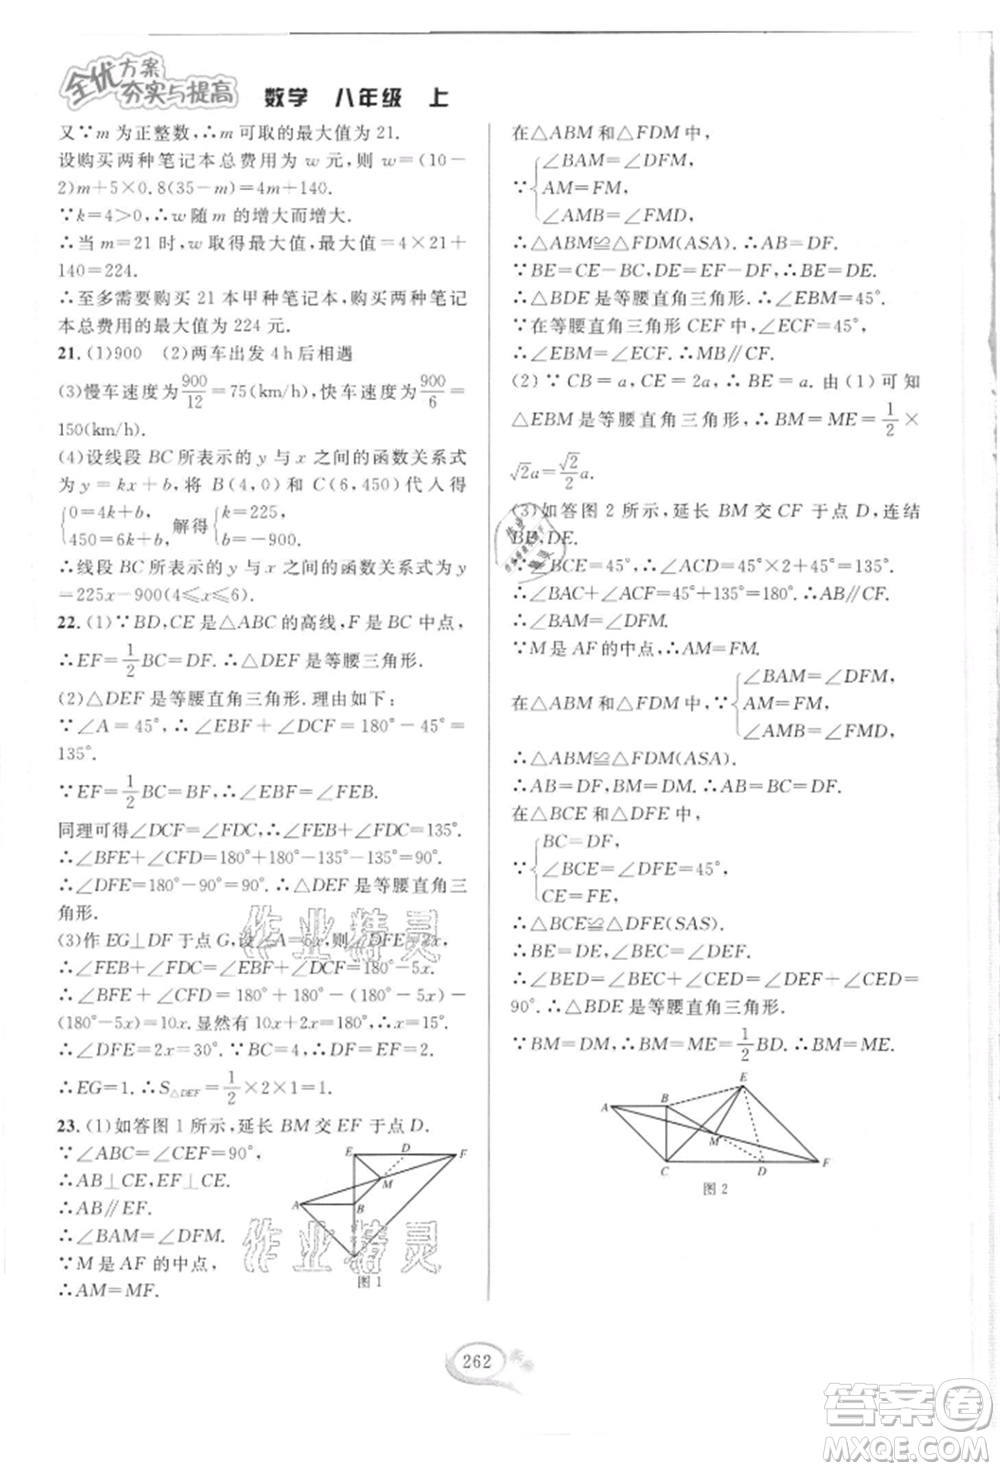 全优方案
夯实与提高 数学 八年级 上
又∵m 为正整数,∴m 可取的最大值为 21.
设购买两种笔记本总费用为 w 元,则 w=(10-
2)m+5×0.8(35-m)=4m+140.
∵k=4>0,∴w 随 m 的增大而增大.
∴当 m=21 时,w 取得最大值,最大值=4×21+
140=224.
∴至多需要购买 21 本甲种笔记本,购买两种笔记
本总费用的最大值为 224 元.
21. (1)900 (2)两车出发 4 h 后相遇
(3)慢车速度为 900/12=75(km/h),快车速度为 900/6=
150(km/h).
(4)设线段 BC 所表示的 y 与 x 之间的函数关系式
为 y=kx+b,将 B(4,0)和 C(6,450)代入得
{0=4k+b, 450=6k+b. 解得{k=225, b=-900.
∴线段 BC 所表示的 y 与 x 之间的函数关系式为
y=225x-900(4≤x≤6).
22. (1)∵BD,CE 是△ABC 的高线,F 是 BC 中点,
∴EF=1/2BC=DF.∴△DEF 是等腰三角形.
(2)△DEF 是等腰直角三角形.理由如下:
∵∠A=45°,∴∠EBF+∠DCF=180°-45°=
135°.
∵EF=1/2BC=BF,∴∠EBF=∠FEB.
同理可得∠DCF=∠FDC,∴∠FEB+∠FDC=135°.
∴∠BFE+∠CFD=180°+180°-135°-135°=90°.
∴∠DFE=180°-90°=90°.∴△DEF 是等腰直角三
角形.
(3)作 EG⊥DF 于点 G,设∠A=5x,则∠DFE=2x.
∴∠FEB+∠FDC=∠EBF+∠DCF=180°-5x.
∴∠BFE+∠CFD=180°+180°-(180°-5x)-
(180°-5x)=10x.显然有 10x+2x=180°,∴x=15°.
∴∠DFE=2x=30°.∵BC=4,∴DF=EF=2.
∴EG=1.∴S△DEF=1/2×2×1=1.
23. (1)如答图 1 所示,延长 BM 交 EF 于点 D.
∵∠ABC=∠CEF=90°,
∴AB⊥CE,EF⊥CE.
∴AB∥EF.
∴∠BAM=∠DFM.
∵M 是 AF 的中点,
∴AM=MF.
E D F
M
A B
图 1
在△ABM 和△FDM 中,
∵{∠BAM=∠DFM, AM=FM, ∠AMB=∠FMD,
∴△ABM≌△FDM(ASA).∴AB=DF.
∵BE=CE-BC,DE=EF-DF.
∴△BDE 是等腰直角三角形.∴∠EBM=45°.
∵在等腰直角三角形 CEF 中,∠ECF=45°,
∴∠EBM=∠ECF.∴MB∥CF.
(2)∵CB=a,CE=2a,∴BE=a.由(1)可知
△EBM 是等腰直角三角形,∴BM=ME=1/2×
√2a=√2/2a.
(3)如答图 2 所示,延长 BM 交 CF 于点 D,连结
BE,DE.
∵∠BCE=45°,∴∠ACD=45°×2+45°=135°.
∴∠BAC+∠ACF=45°+135°=180°.∴AB∥CF.
∴∠BAM=∠DFM.
∵M 是 AF 的中点,∴AM=FM.
在△ABM 和△FDM 中,∵{∠BAM=∠DFM, AM=FM, ∠AMB=∠FMD,
∴△ABM≌△FDM(ASA).
∴AB=DF,BM=DM.∴AB=BC=DF.
在△BCE 和△DFE 中,
∵{BC=DF, ∠BCE=∠DFE=45°, CE=FE,
∴△BCE≌△DFE(SAS).
∴BE=DE,∠BEC=∠DEF.
∴∠BED=∠BEC+∠CED=∠DEF+∠CED=
90°.∴△BDE 是等腰直角三角形.
∵BM=DM,∴BM=ME=1/2BD.∴BM=ME.
A B E
M
C D F
图 2
作业精灵
作业精灵
262
答案圈
MXQE.COM